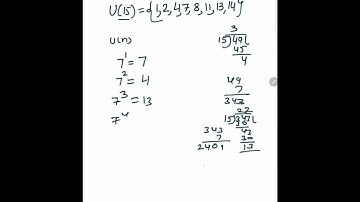 U(15) = {1,2,4,7,8,11,13,14}
U(n)
7^1 = 7
7^2 = 4
7^3 = 13
7^4
3
15)49(
45
4
49
7
343
22
15)343(
30
43
30
13
343
7
2401